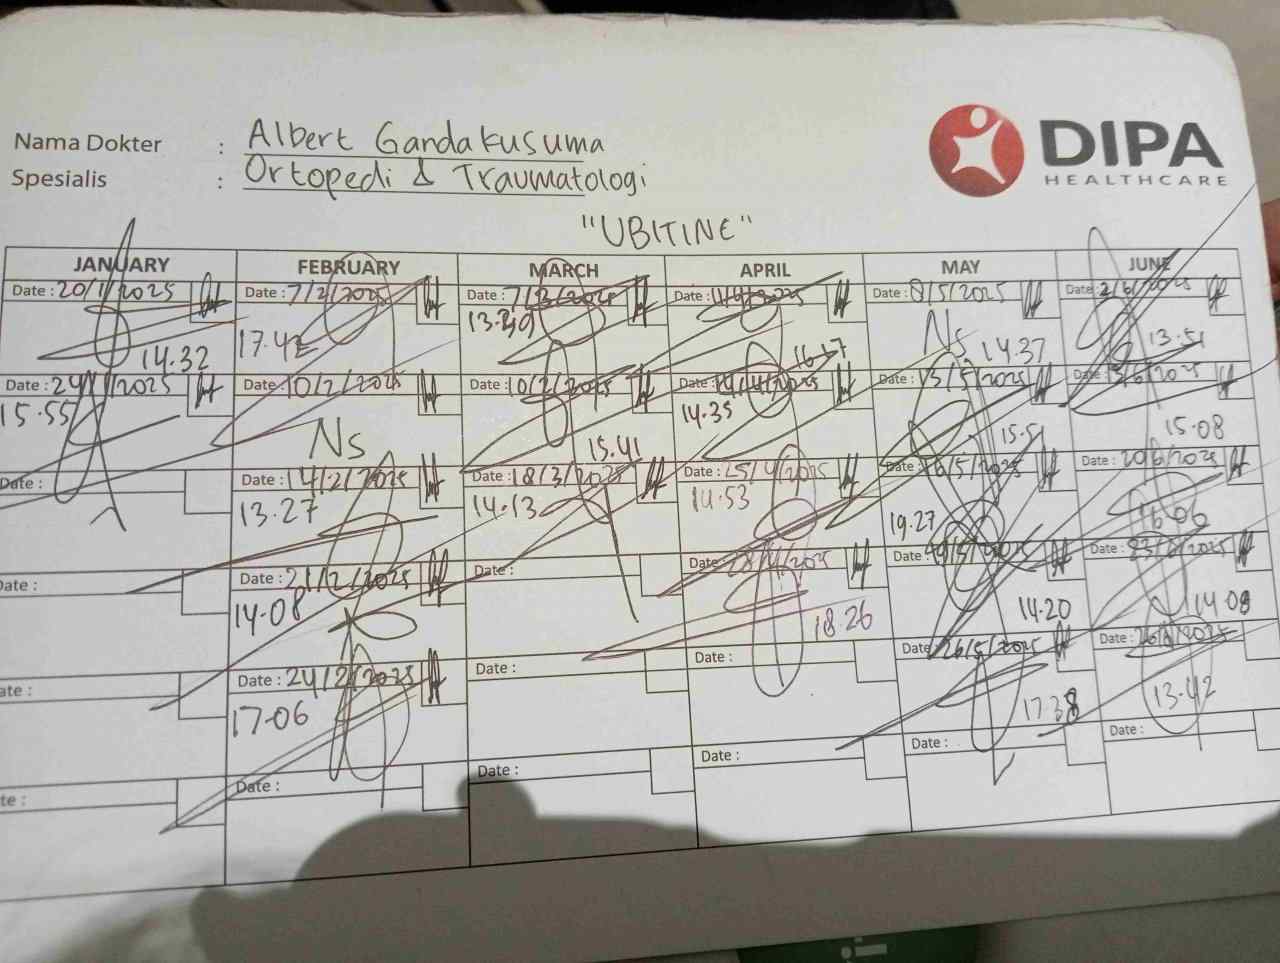 Nama Dokter : Albert Gandakusuma
Spesialis : Ortopedi & Traumatologi
DIPA
HEALTHCARE
"UBITINE"
JANUARY
Date : 20/1/2025
14.32
Date : 24/1/2025
15.55
Date :
Date :
ate :
te :
FEBRUARY
Date : 7/2/2025
17.42
Date : 10/2/2025
Ns
Date : 14/2/2025
13.27
Date : 21/2/2025
14.08
Date : 24/2/2025
17.06
Date :
MARCH
Date : 7/3/2025
13.39
Date : 10/3/2025
15.41
Date : 18/3/2025
14.13
Date :
Date :
Date :
APRIL
Date :
16.17
Date : 14/4/2025
14.35
Date : 25/4/2025
14.53
Date : 28/4/2025
18.26
Date :
Date :
MAY
Date : 8/5/2025
Ns
14.37
Date : 13/5/2025
15.51
Date : 16/5/2025
19.27
Date : 19/5/2025
14.20
Date : 26/5/2025
17.38
Date :
JUNE
Date : 2/6/2025
13.51
Date : 13/6/2025
15.08
Date : 20/6/2025
16.06
Date : 23/6/2025
14.09
Date : 26/6/2025
13.42
Date :